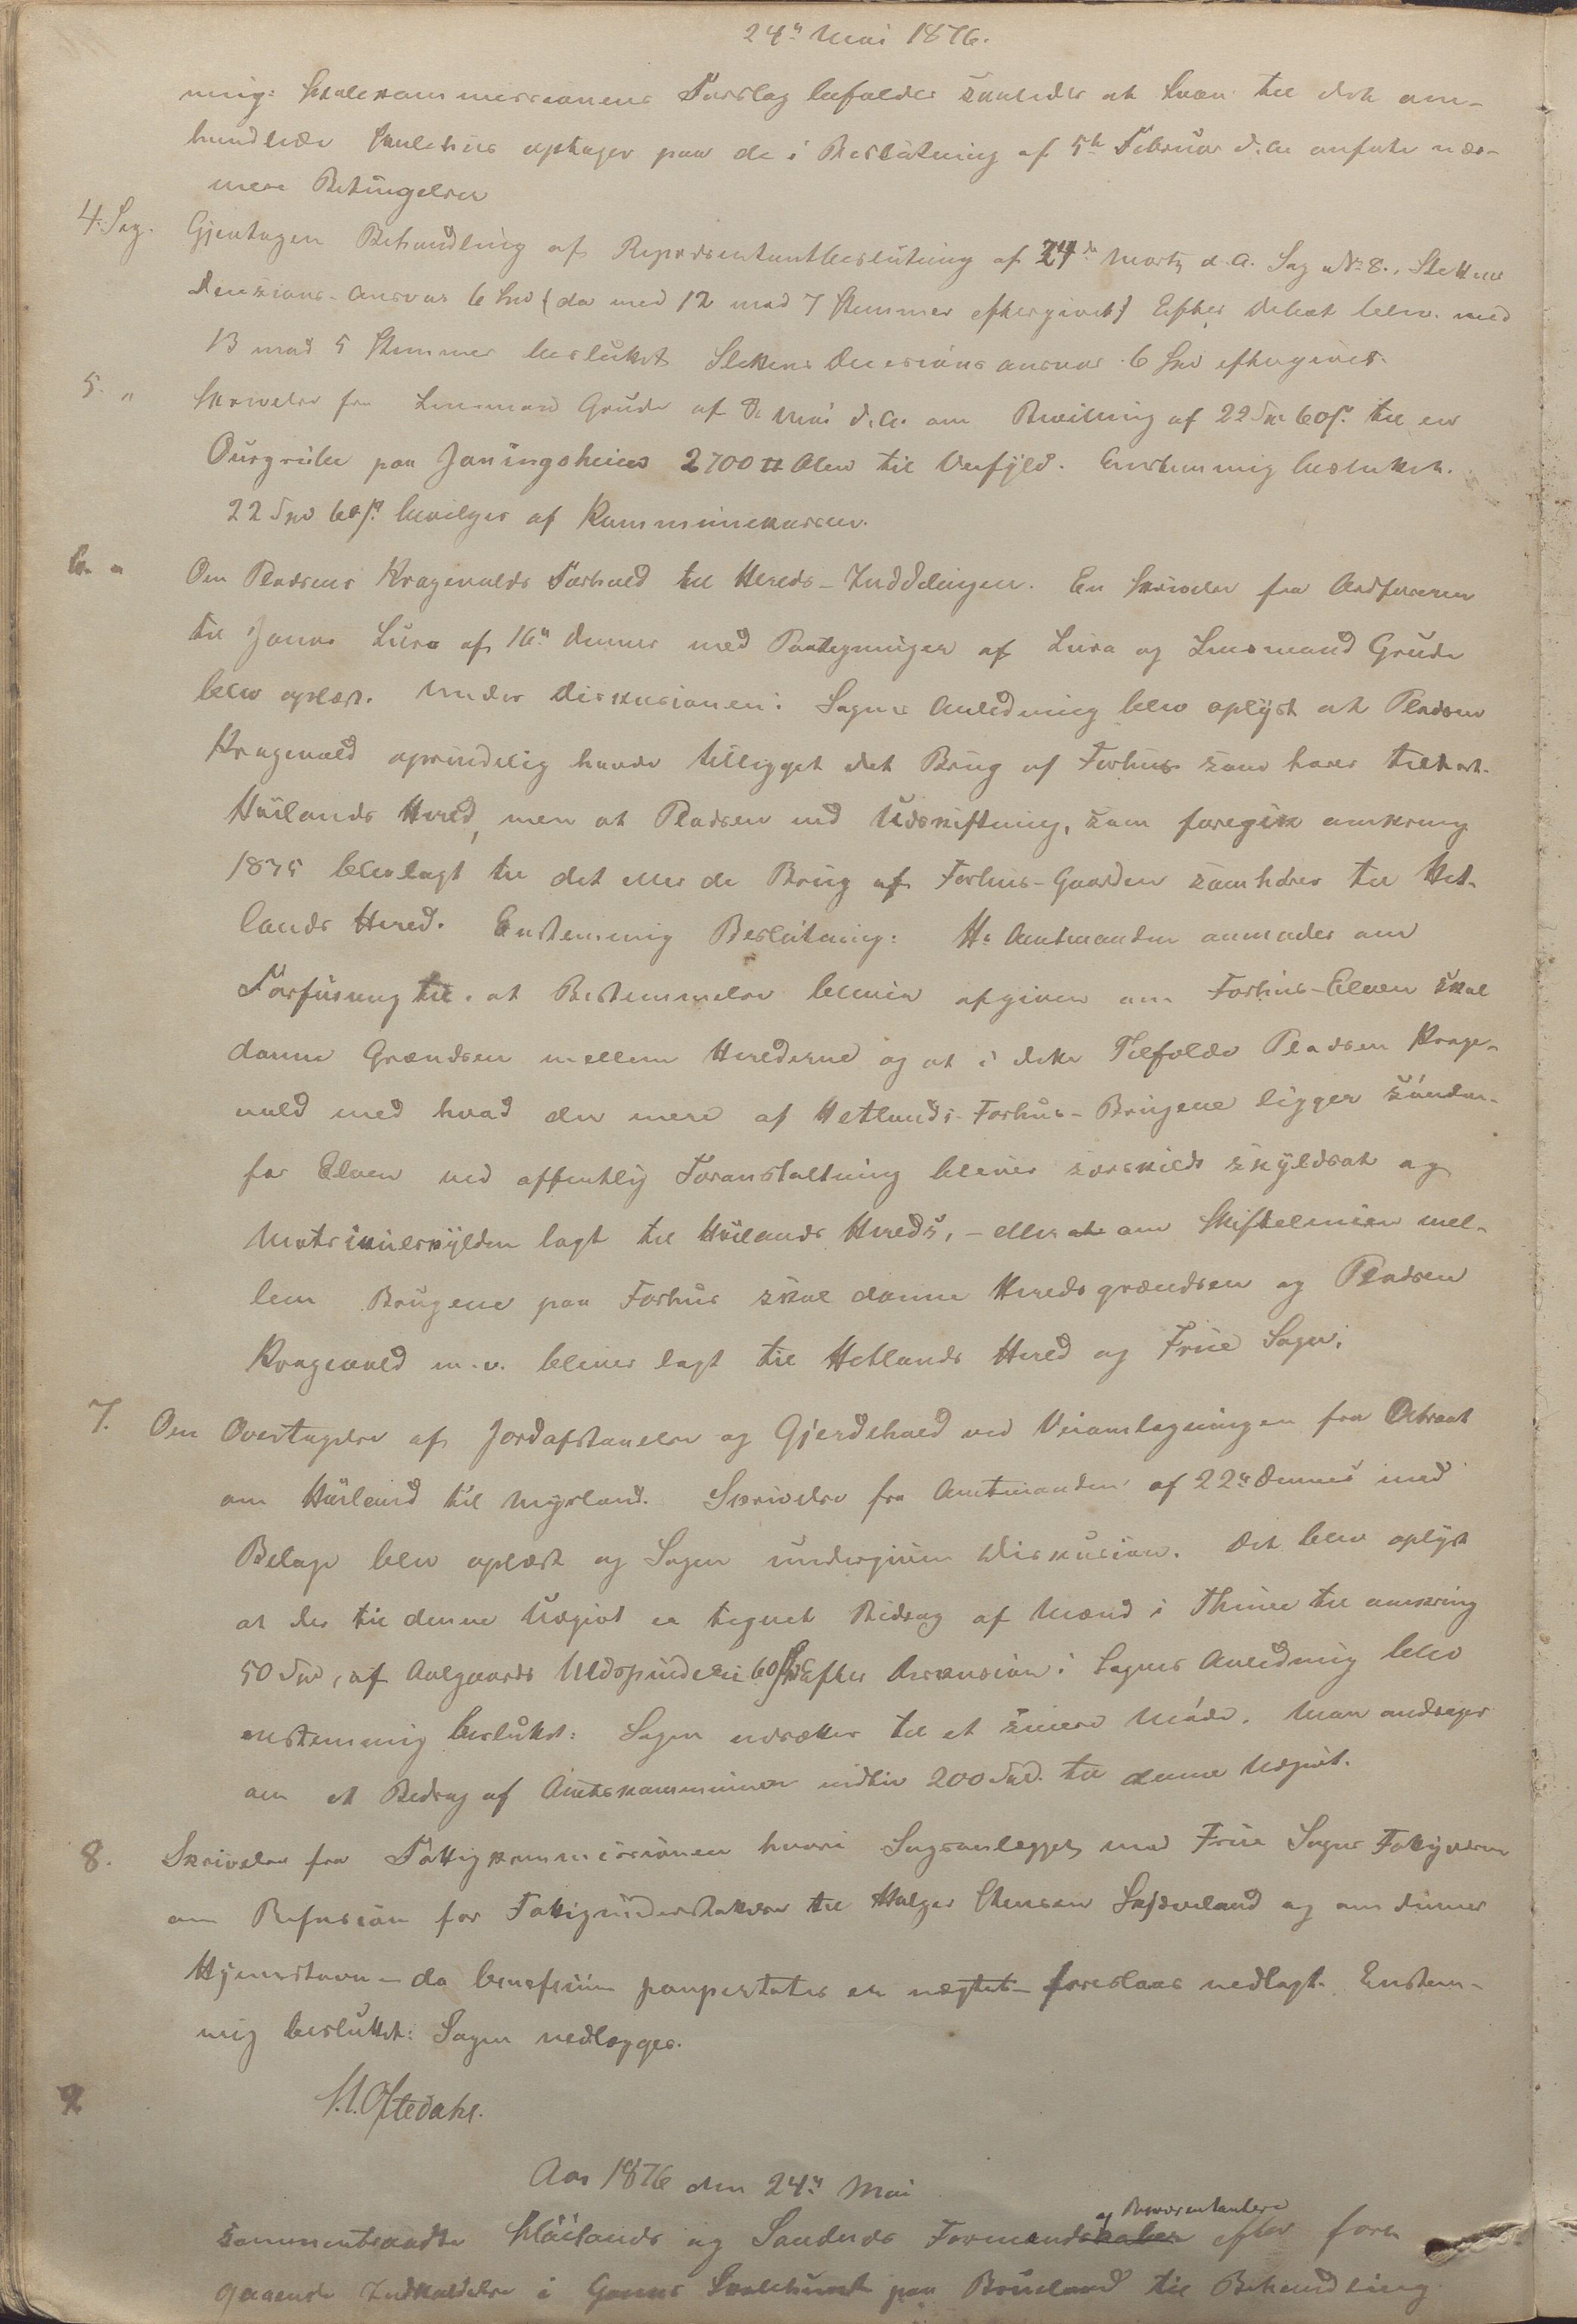 24de Mai 1876.
ning: Skolekommissionens Forslag befaldes saaledes at Laan til det om-
handlede Skolehus optages paa de i Beslutning af 5te Februar d.A. anførte nær-
mere Betingelser
4. Sag. Gjentagen Behandling af Repræsentantbeslutning af 24de Marts d.A. Sag No 8., Slettens
Decisions-Ansvar 6 Spd (da med 12 mod 7 Stemmer eftergivet) Efter Debat blev med
13 mod 5 Stemmer besluttet Slettens Decisions ansvar 6 Spd eftergives.
5. " Skrivelse fra Lensmand Grude af 8de Mai d.A. om Bevilling af 22 Spd 60 s. til en
Øurgrube paa Joningsheien 2700 □ Alen til Veifyld. Enstemmig besluttet.
22 Spd 60 s. bevilges af Kommunekassen.
6. " Om Pladsens Kragevolds Forhold til Hereds-Inddelingen. En Skrivelse fra Ordføreren
til Jonas Lura af 16de dennes med Paategninger af Lura og Lensmand Grude
blev oplæst. Under Diskusionen i Sagens Anledning blev oplyst at Pladsen
Kragevold oprindelig havde tilligget det Brug af Forhus som hører til
Høilands Hered, men at Pladsen ved Udskiftning, som foregik omkring
1835 blev lagt til det eller de Brug af Forhus-Gaarden som hører til Het-
lands Hered. Enstemmig Beslutning: Hr Amtmanden anmodes om
Forføining til at Bestemmelse bliver afgiven om Forhus-Elven skal
danne Grændsen mellem Herederne og at i dette Tilfælde Pladsen Krage-
vold med hvad der mere af Hetlands-Forhus-Brugene ligger sønden-
for Elven ved offentlig Foranstaltning bliver særskildt skyldsat og
Matrikulskylden lagt til Høilands Hered, – eller at om Skiftelinien mel-
lem Brugene paa Forhus skal danne Heredsgrændsen og Pladsen
Kragevold m.v. bliver lagt til Hetlands Hered og Frue Sogn.
7. Om Overtagelse af Jordafstaaelse og Gjerdehold ved Veiomlægningen fra Osteraat
om Høiland til Myrland. Skrivelse fra Amtmanden af 22de dennes med
Belage blev oplæst og Sagen undergiven Diskusion. Det blev oplyst
at der til denne Udgivt er tegnet Bidrag af Mænd i Thime til omkring
50 Spd, af Aalgaards Uldspinderi 60 Spd Efter Diskusion i Sagens Anledning blev
enstemmig besluttet: Sagen udsættes til et senere Møde. Man andrager
om et Bidrag af Amtskommunen indtil 200 Spd. til denne Udgivt.
8. Skrivelse fra Fattigkommissionen hvori Sagsanlægget mod Frue Sogns Fattigvæsen
om Refusion for Fattigunderstøttelse til Holger Olensen og om dennes
Hjemstavn – da beneficium paupertatis er nægtet – foreslaaes nedlagt. Enstem-
mig besluttet: Sagen nedlægges.
Oftedahl.
Aar 1876 den 24de Mai
og Repræsentantere
sammentraadte Høilands og Sandnes Formandskaber efter fore-
gaaende Indkaldelse i Gannes Skolehus paa Brueland til Behandling